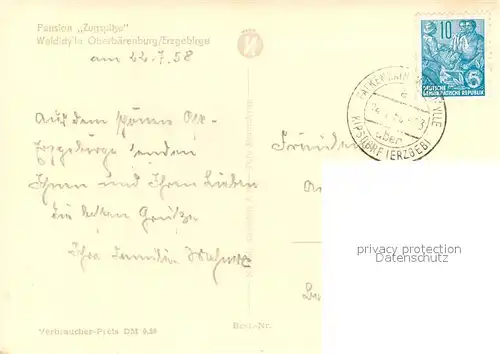 Pension „Zugspitze"
Waldidylle Oberbärenburg/Erzgebirge
am 22.7.58
Aus dem schönen Ost-
Erzgebirge senden
Ihnen und Ihren Lieben
die besten Grüße
Ihre Familie
Verbraucher-Preis DM 0,20
Best.-Nr.
10
DEUTSCHE
DEMOKRATISCHE REPUBLIK
über
KIPSDORF (ERZGEB)
privacy protection
Datenschutz